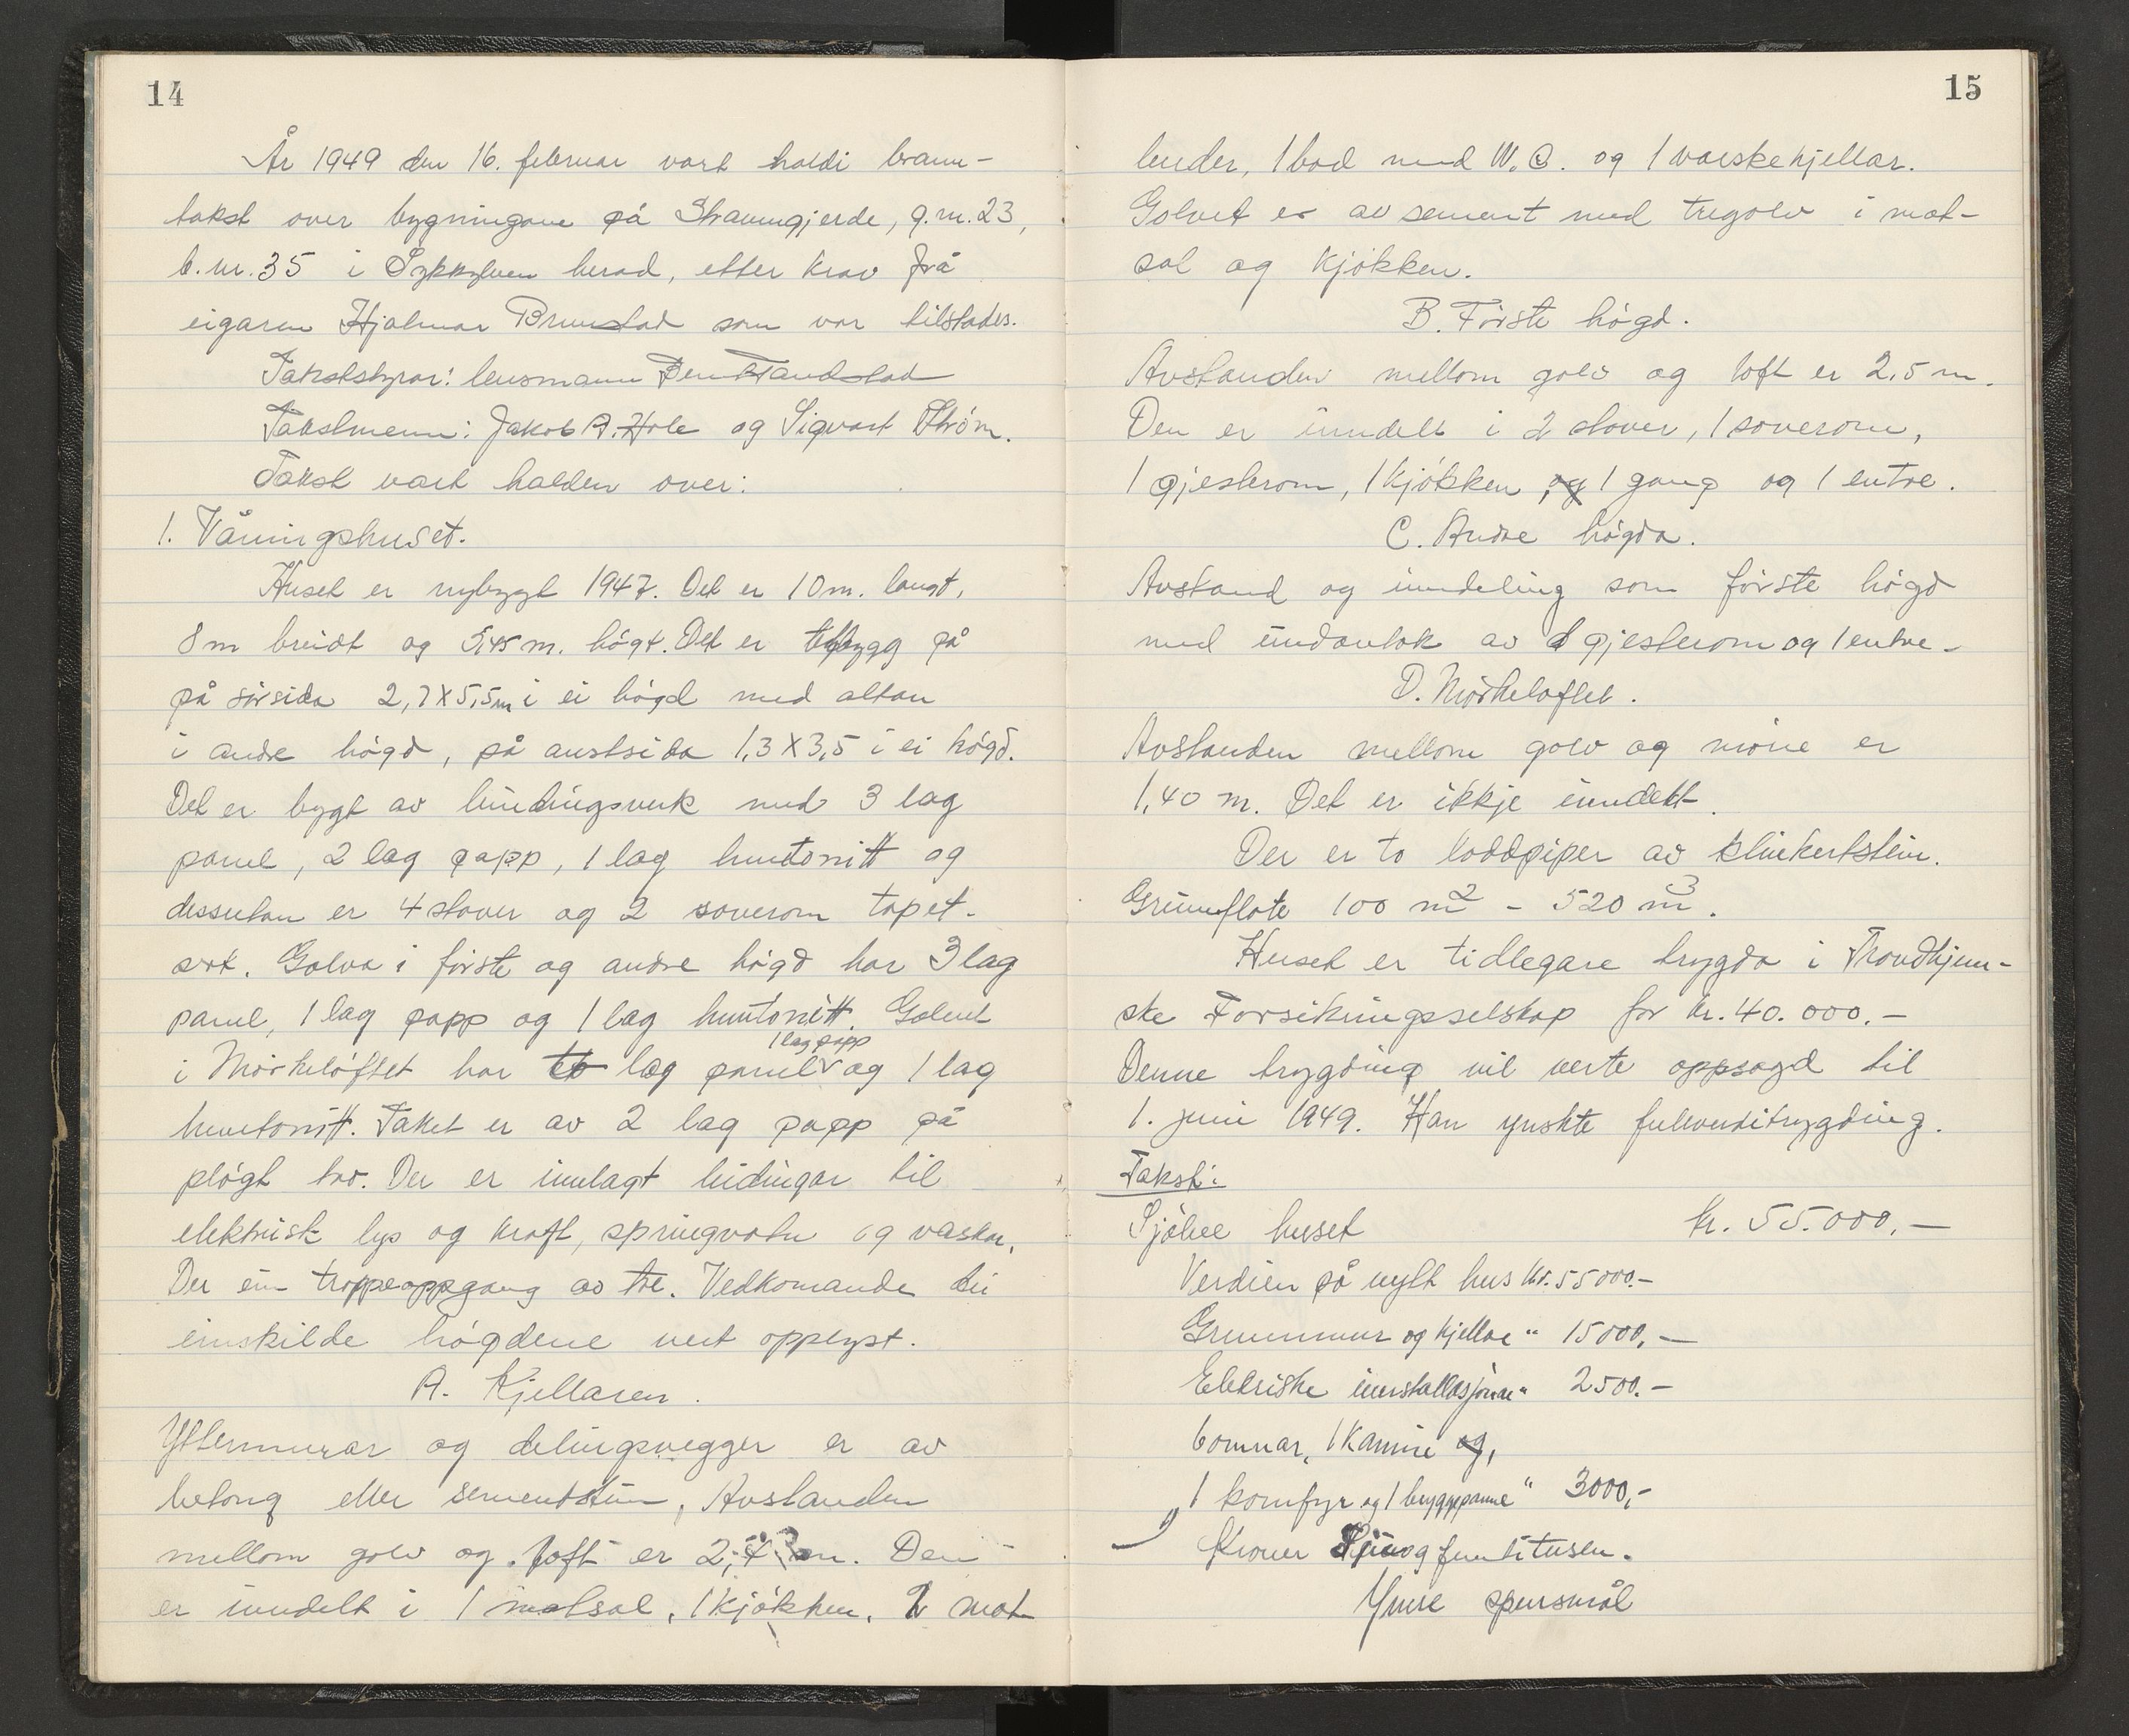 14
År 1949 den 16. februar vart haldi brann-
takst over bygningane på Straumgjerde, g.nr. 23,
b.nr. 35 i Sykkylven herad, etter krav frå
eigaren Hjalmar Brunstad som var tilstades.
Takststyrar: lensmann Tandstad
Takstmenn: Jakob A. Hole og Sigvart Strøm.
Takst vart halden over:
1. Våningshuset.
Huset er nybygt 1947. Det er 10 m. langt,
8 m breidt og 5,45 m. høgt. Det er tilbygg på
på sørsida 2,7 X 5,5 m i ei høgd med altan
i andre høgd, på austsida 1,3 X 3,5 i ei høgd.
Det er bygt av bindingsverk med 3 lag
panel, 2 lag papp, 1 lag huntonitt og
dessutan er 4 stover og 2 soverom tapet-
sert. Golva i første og andre høgd har 3 lag
panel, 1 lag papp og 1 lag huntonitt. Golvet
i Mørkeloftet har to lag panel 1 lag papp og 1 lag
huntonitt. Taket er av 2 lag papp på
pløgt bord. Der er innlagt leidingar til
elektrisk lys og kraft, springvatn og vaskar.
Der ein trappeoppgang av tre. Vedkomande dei
einskilde høgdene vert opplyst.
A. Kjellaren.
Yttermurar og delingsvegger er av
betong eller sementstein, Avstanden
mellom golv og loft er 2, m. Den
er inndelt i 1 matsal, 1 kjøkken, 2 mat
15
buder, 1 bad med W.C. og 1 vaskekjellar.
Golvet er av sement med tregolv i mat-
sal og kjøkken.
B. Første høgd.
Avstanden mellom golv og loft er 2,5 m.
Den er inndelt i 2 stover, 1 soverom,
1 gjesterom, 1 kjøkken, og 1 gang og 1 entre.
C. Andre høgda.
Avstand og inndeling som første høgd
med undantak av 1 gjesterom og 1 entre.
D. Mørkeloftet.
Avstanden mellom golv og møne er
1,40 m. Det er ikkje inndelt.
Der er to loddpiper av klinkertstein.
Grunnflate 100 m2 - 520 m3.
Huset er tidlegare trygda i Trondhjem-
ske Forsikringsselskap for kr. 40.000.-
Denne trygding vil verte oppsagd til
1. juni 1949. Han ynskte fullverditrygding.
Takst:
Sjølve huset kr. 55.000.-
Verdien på nytt hus kr. 55000.-
Grunnmur og kjellar " 15000.-
Elektriske innstallasjonar " 2500.-
6 omnar, 1 kamin og,
1 komfyr og 1 bryggepanne " 3000,-
Kroner femtitusen.
Ymse spursmål